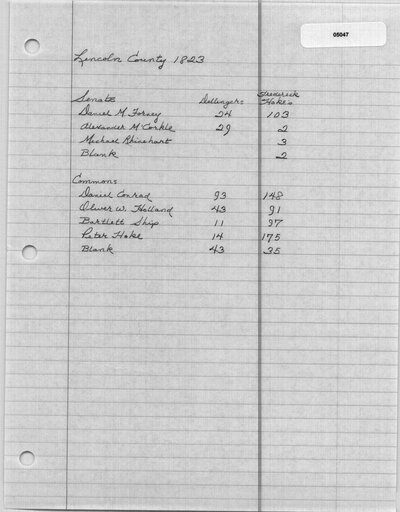 05047
Lincoln County 1823
Senate Dellingers Frederick Hoke's
Daniel M. Forney 24 103
Alexander McCorkle 29 2
Michael Rhinehart 3
Blank 2
Commons
Daniel Conrad 93 148
Oliver W. Holland 43 91
Bartlett Ship 11 97
Peter Hoke 14 175
Blank 43 35